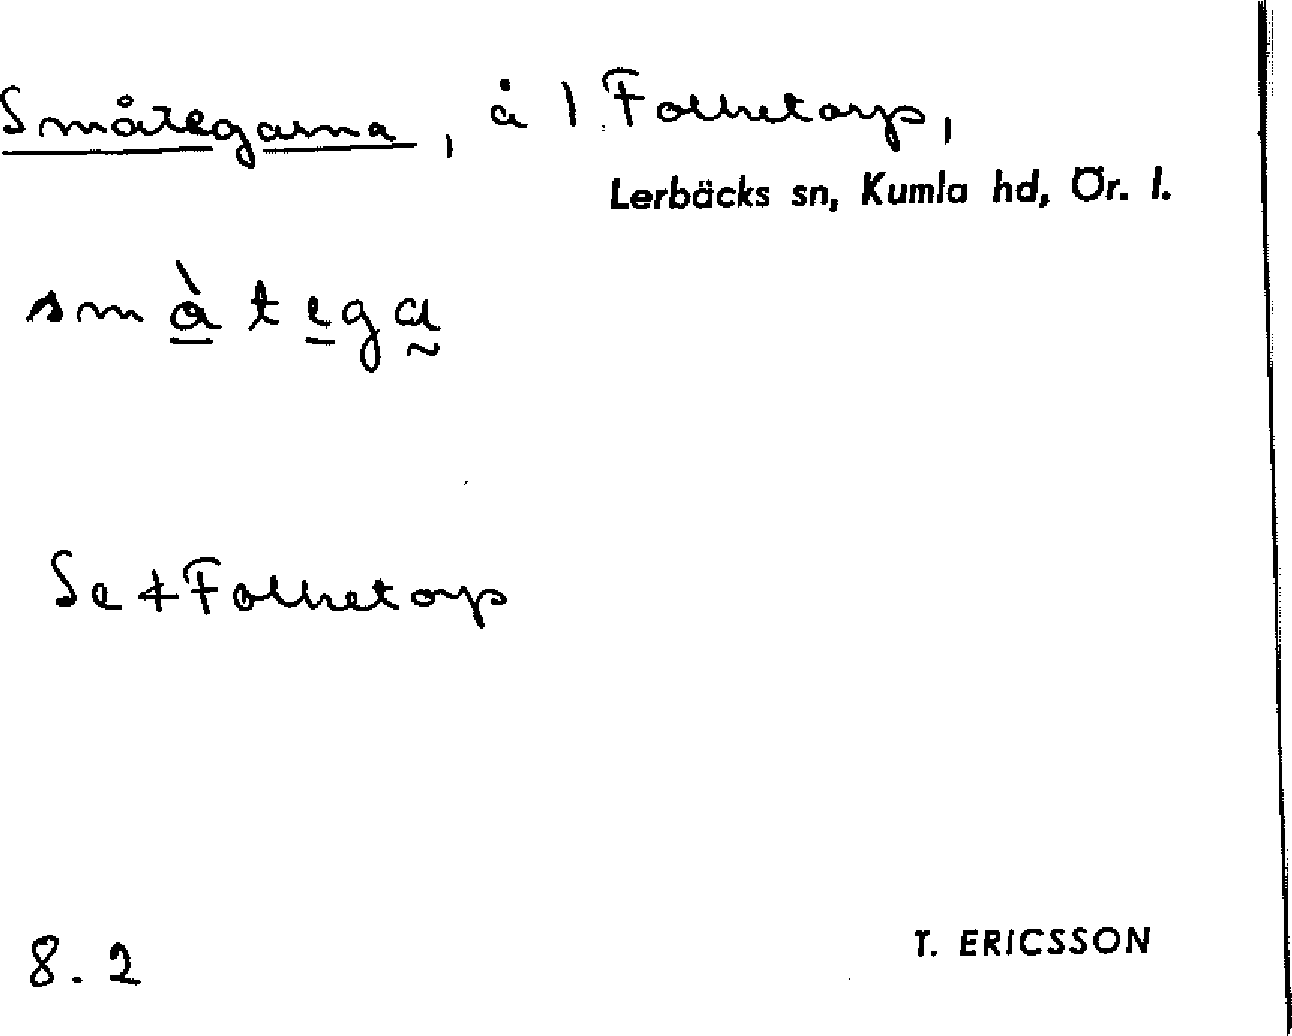 Småtegarna, å 1 Folketorp,
Lerbäcks sn, Kumla hd, Ör. l.
små̀tega
Se + Folketorp
8.2
T. ERICSSON